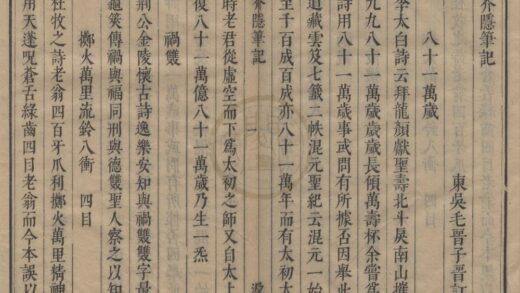 芥隱筆記
東吳毛晉子晉訂
八十一萬歲
李太白詩云拜龍顏獻聖壽北斗戾南山摧
九九八十一萬歲歲長傾萬壽杯余嘗爲
詩用八十一萬歲事或問有所據否因舉此
道藏雲笈七籤二帙混元聖紀云混元一始
至千百成百成亦八十一萬年而有太初太
芥隱筆記
一
汲
時老君從虛空而下爲太初之師又自太上
復八十一萬億八十一萬歲乃生一炁
禍雙
荆公金陵懷古詩逸樂安知與禍雙雙字是
龜筴傳禍與福同刑與德雙聖人察之以知
擲火萬里流鈴八衝
四目
杜牧之詩老翁四百牙爪利擲火萬里精神
用天蓬呪蒼舌綠齒四目老翁而今本誤以